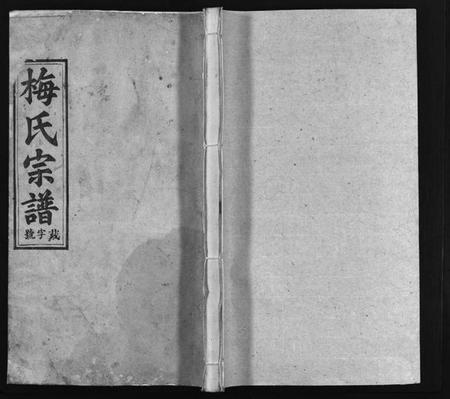 梅氏宗譜
裁字號